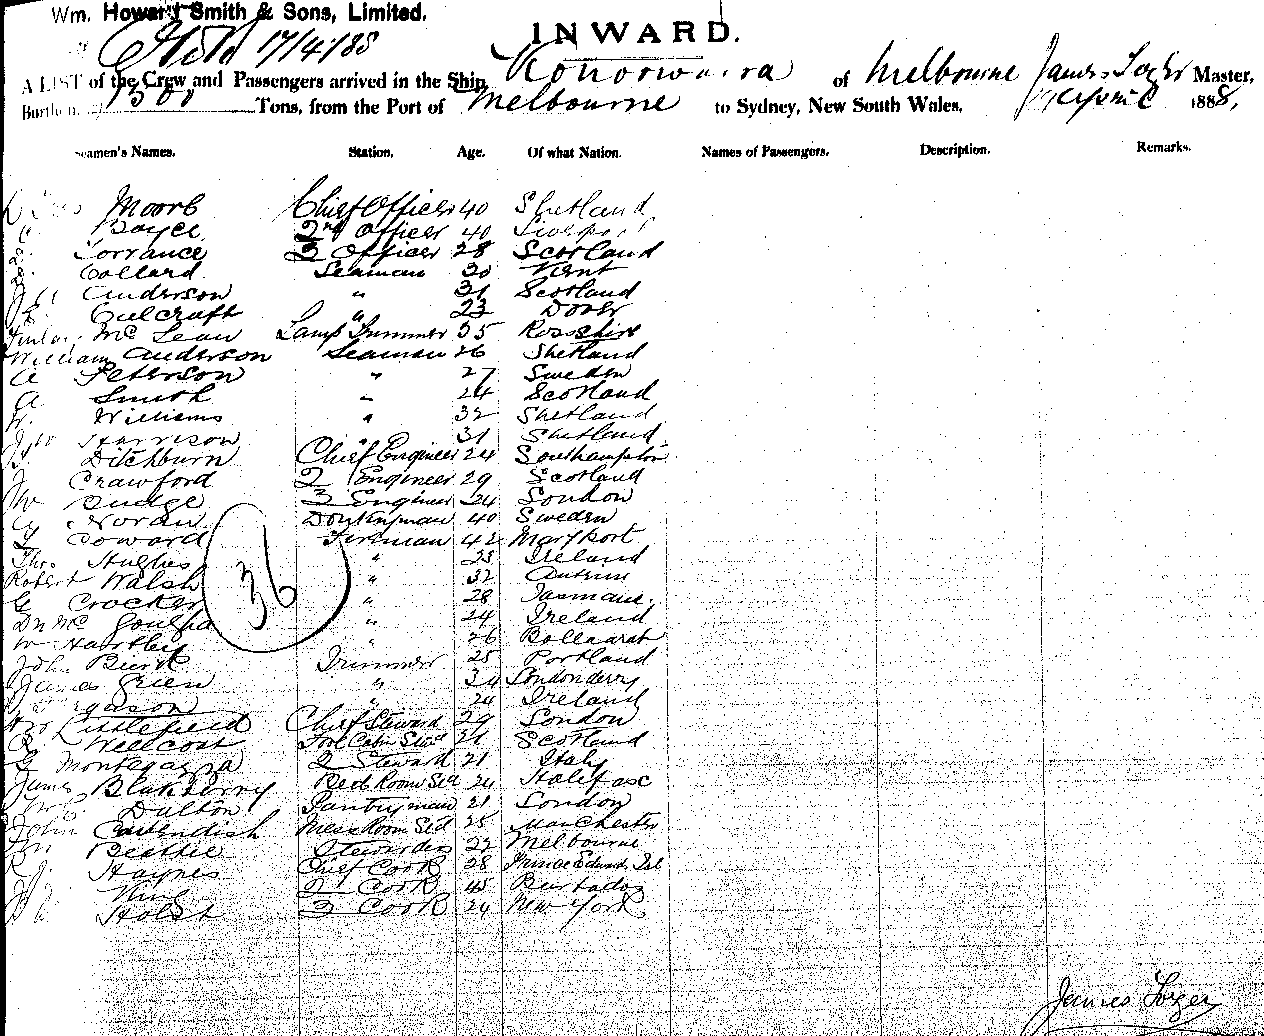 Wm. Howard Smith & Sons, Limited.
17/4/88
INWARD.
A LIST of the Crew and Passengers arrived in the Ship of Melbourne James Master,
Burthen 1300 Tons, from the Port of Melbourne to Sydney, New South Wales, April 1888,
Seamen's Names. Station. Age. Of what Nation. Names of Passengers. Description. Remarks.
Moore Chief Officer 40 Shetland
Boyce 2nd Officer 40 Liverpool
Torrance 3 Officer 28 Scotland
Collard Seaman 30 Kent
Anderson " 31 Scotland
Gulcraft " 23 Dover
McLean Lamp Trimmer 35 Rosshire
William Anderson Seaman 26 Shetland
Peterson " 27 Sweden
A Smith " 24 Scotland
Williams " 32 Shetland
Harrison " 31 Shetland
Ditchburn Chief Engineer 24 Southampton
Crawford 2 Engineer 29 Scotland
Budge 3 Engineer 24 London
Noran Donkeyman 40 Sweden
Coward Fireman 42 Maryport
Thos. Hughes " 25 Ireland
Robert Walsh " 32 Antrim
G Crocker " 28 Tasmania
" 24 Ireland
W Hartley " 26 Ballaarat
John Trimmer 25 Portland
James Green " 34 Londonderry
" 24 Ireland
Littlefield Chief Steward 29 London
Wellcoat Fore Cabin Stwd 21 Scotland
G 2 Steward 21 Italy
James Blakberry Bed Room Std 24 Halifasc
Dalton Pantryman 21 London
John Cavendish Mess Room Std 25 Manchester
Beattie Stewardess 22 Melbourne
Haynes Chief Cook 28 Prince Edward Isl
King 2 Cook 45 Barbados
Holst 3 Cook 24 New York
36
James